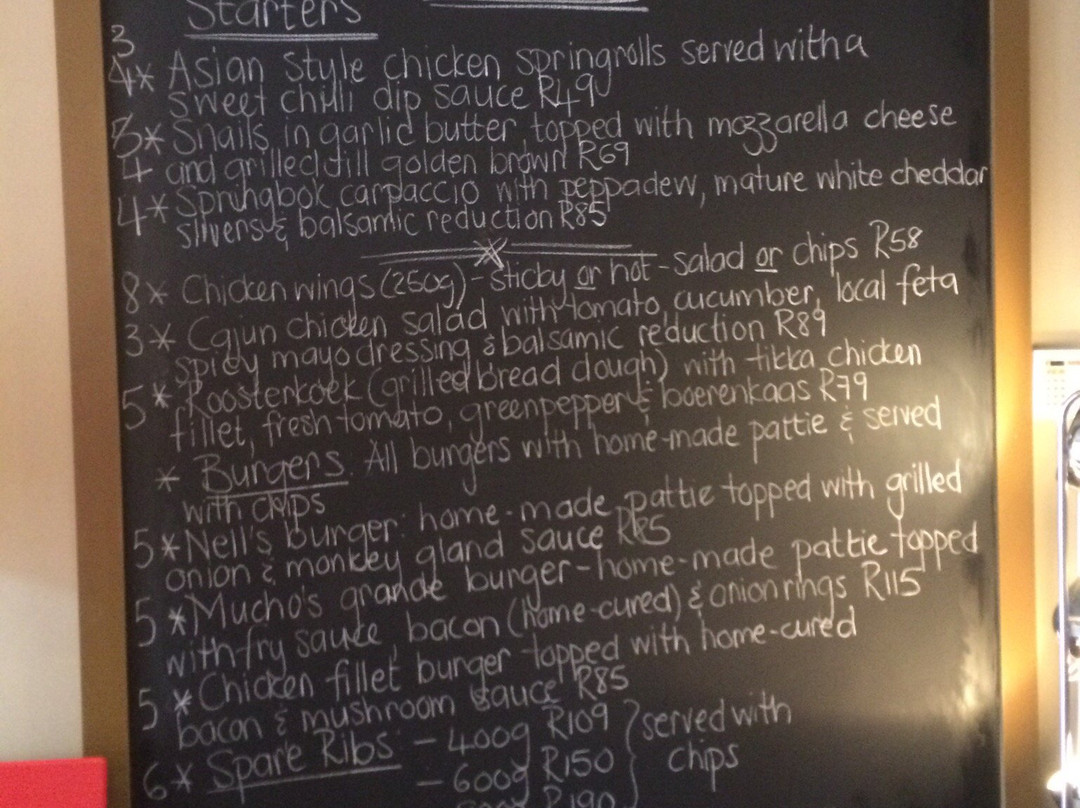 Starters
3
4* Asian Style chicken springrolls served with a
sweet chilli dip sauce R49
5* Snails in garlic butter topped with mozzarella cheese
4 and grilled till golden brown R69
4* Springbok carpaccio with peppadew, mature white cheddar
slivers & balsamic reduction R85
8* Chicken wings (250g) - sticky or hot - salad or chips R58
3* Cajun chicken salad with tomato, cucumber, local feta
spicy mayo dressing & balsamic reduction R89
5* Roosterkoek (grilled bread dough) with tikka chicken
fillet, fresh tomato, greenpepper & boerenkaas R79
* Burgers. All burgers with home-made pattie & served
with chips
5* Nell's burger: home-made pattie topped with grilled
onion & monkey gland sauce R85
5* Mucho's grande burger - home-made pattie topped
with fry sauce, bacon (home-cured) & onion rings R115
5* Chicken fillet burger topped with home-cured
bacon & mushroom sauce R85
6* Spare Ribs - 400g R109 } served with
- 600g R150 chips
R190